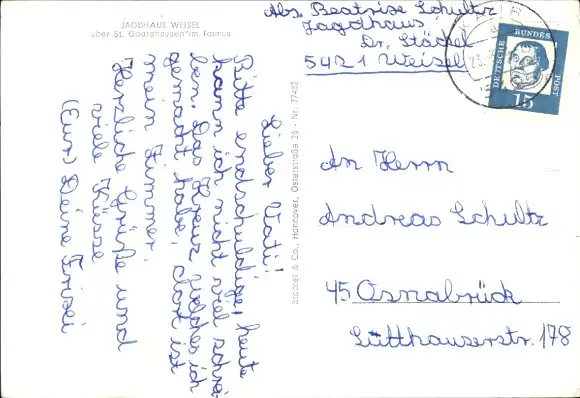 JAGDHAUS WEISEL
über St. Goarshausen/im Taunus
Abs. Beatrise Schultz
Jagdhaus
Dr. Stäckel
5421 Weisel
DEUTSCHE BUNDESPOST
15
Lieber Vati!
Bitte endschuldige, heute
kann ich nicht viel schrei
ben. Das Kreuz welches ich
gemacht habe, dort ist
mein Zimmer.
Herzliche Grüße und
viele Küsse
(Eure) Deine Trisei
Stäckel & Co., Hannover, Osterstraße 26 - Nr. 77482
An Herrn
Andreas Schultz
45 Osnabrück
Lütthauserstr. 178